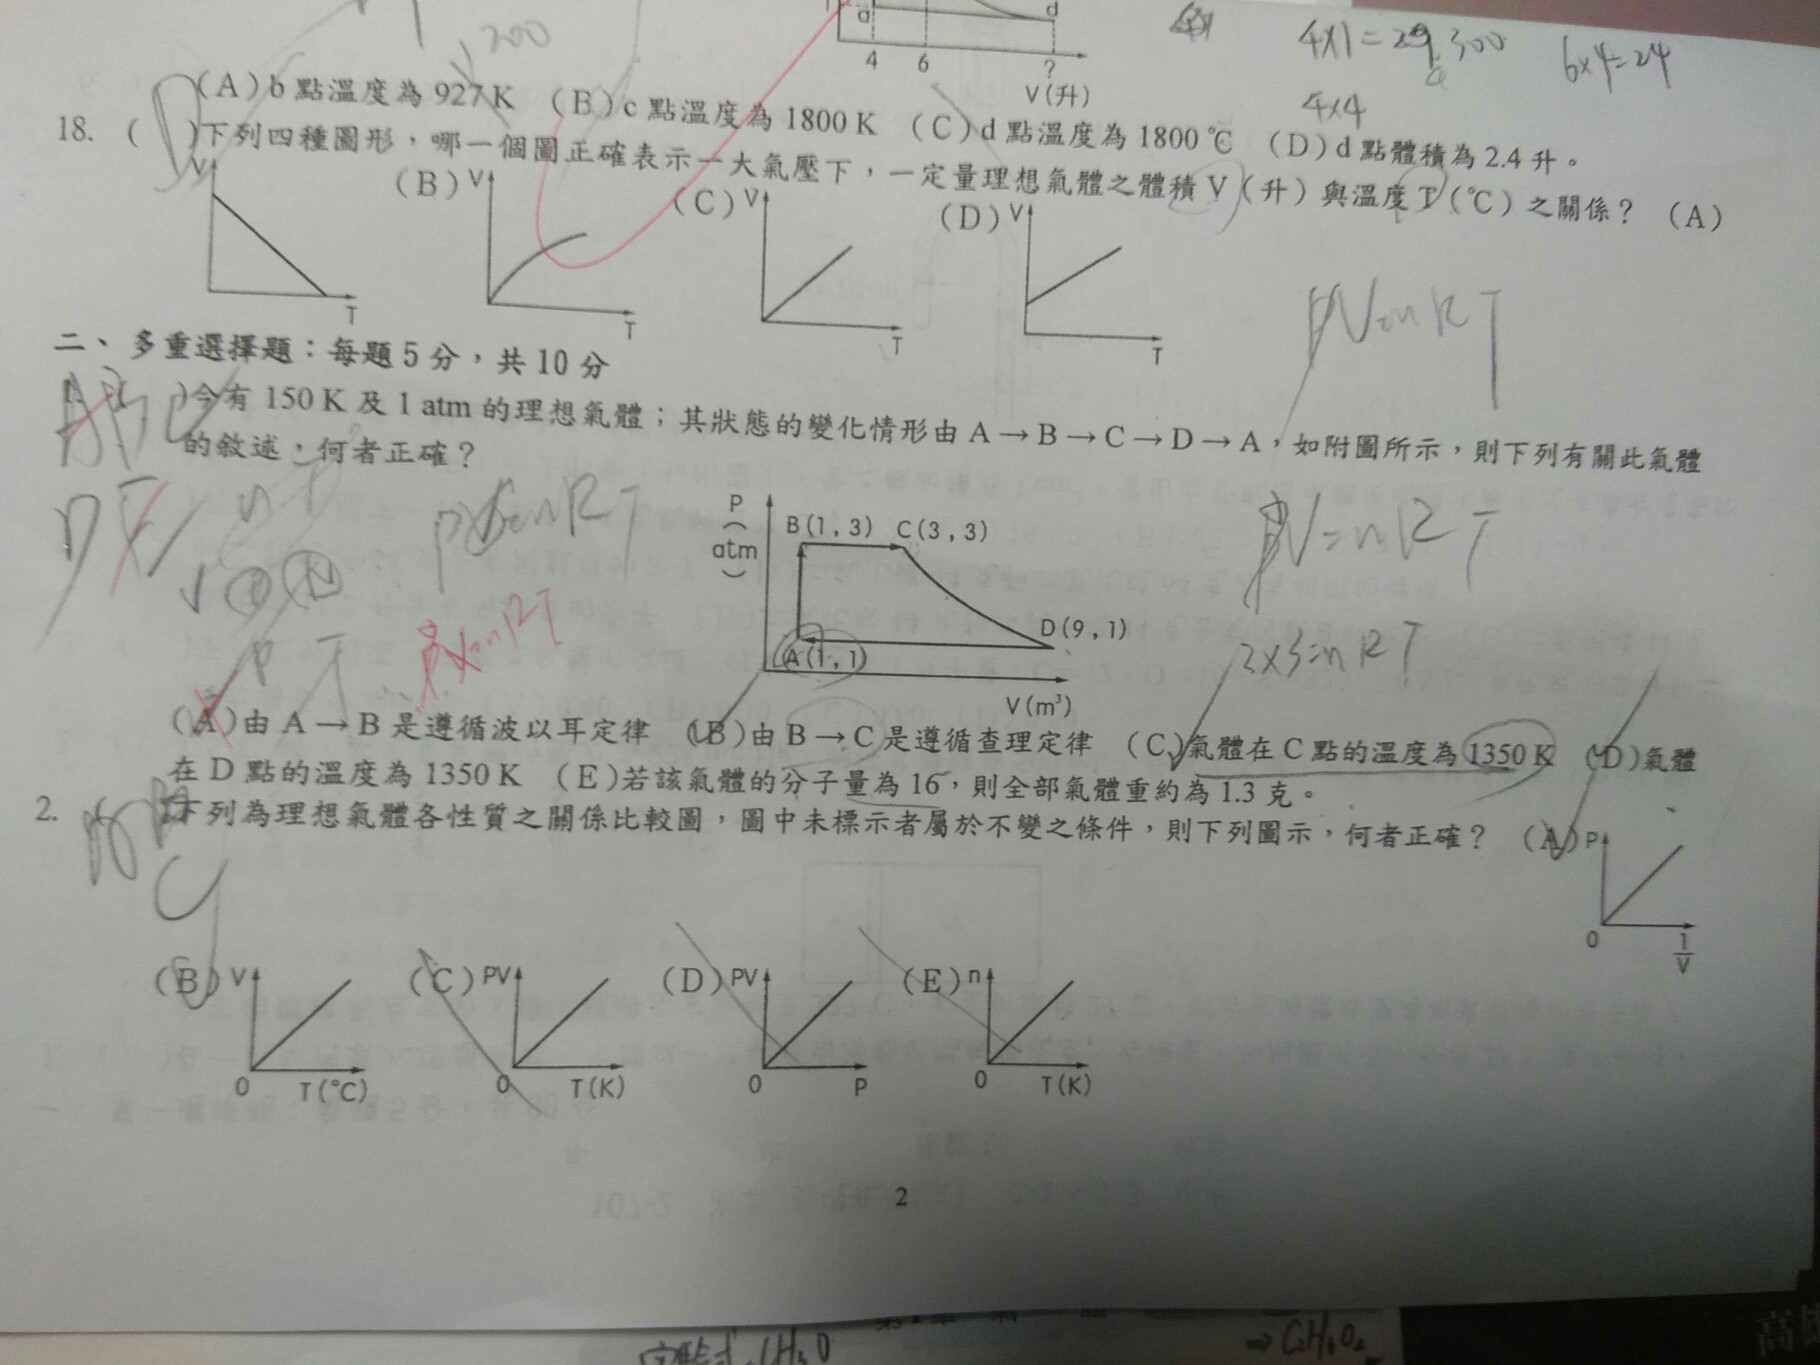 a d
4 6 ?
V(升)
4×1=
300
6×4=24
4×4
200
(A)b點溫度為 927 K (B)c點溫度為 1800 K (C)d點溫度為 1800 ℃ (D)d點體積為 2.4 升。
18. ( D )下列四種圖形,哪一個圖正確表示一大氣壓下,一定量理想氣體之體積 V(升)與溫度 T(℃)之關係? (A)
V T (B) V T (C) V T (D) V T
PV=nRT
二、多重選擇題:每題 5 分,共 10 分
1. ( )今有 150 K 及 1 atm 的理想氣體;其狀態的變化情形由 A→B→C→D→A,如附圖所示,則下列有關此氣體
的敘述,何者正確?
P(atm)
B(1,3) C(3,3)
D(9,1)
A(1,1)
V(m³)
PV=nRT
PV=nRT
3×3=nRT
(A)由 A→B 是遵循波以耳定律 (B)由 B→C 是遵循查理定律 (C)氣體在 C 點的溫度為 1350 K (D)氣體
在 D 點的溫度為 1350 K (E)若該氣體的分子量為 16,則全部氣體重約為 1.3 克。
2. ( )下列為理想氣體各性質之關係比較圖,圖中未標示者屬於不變之條件,則下列圖示,何者正確? (A) P
0 1/V
(B) V 0 T(℃) (C) PV 0 T(K) (D) PV 0 P (E) n 0 T(K)
2